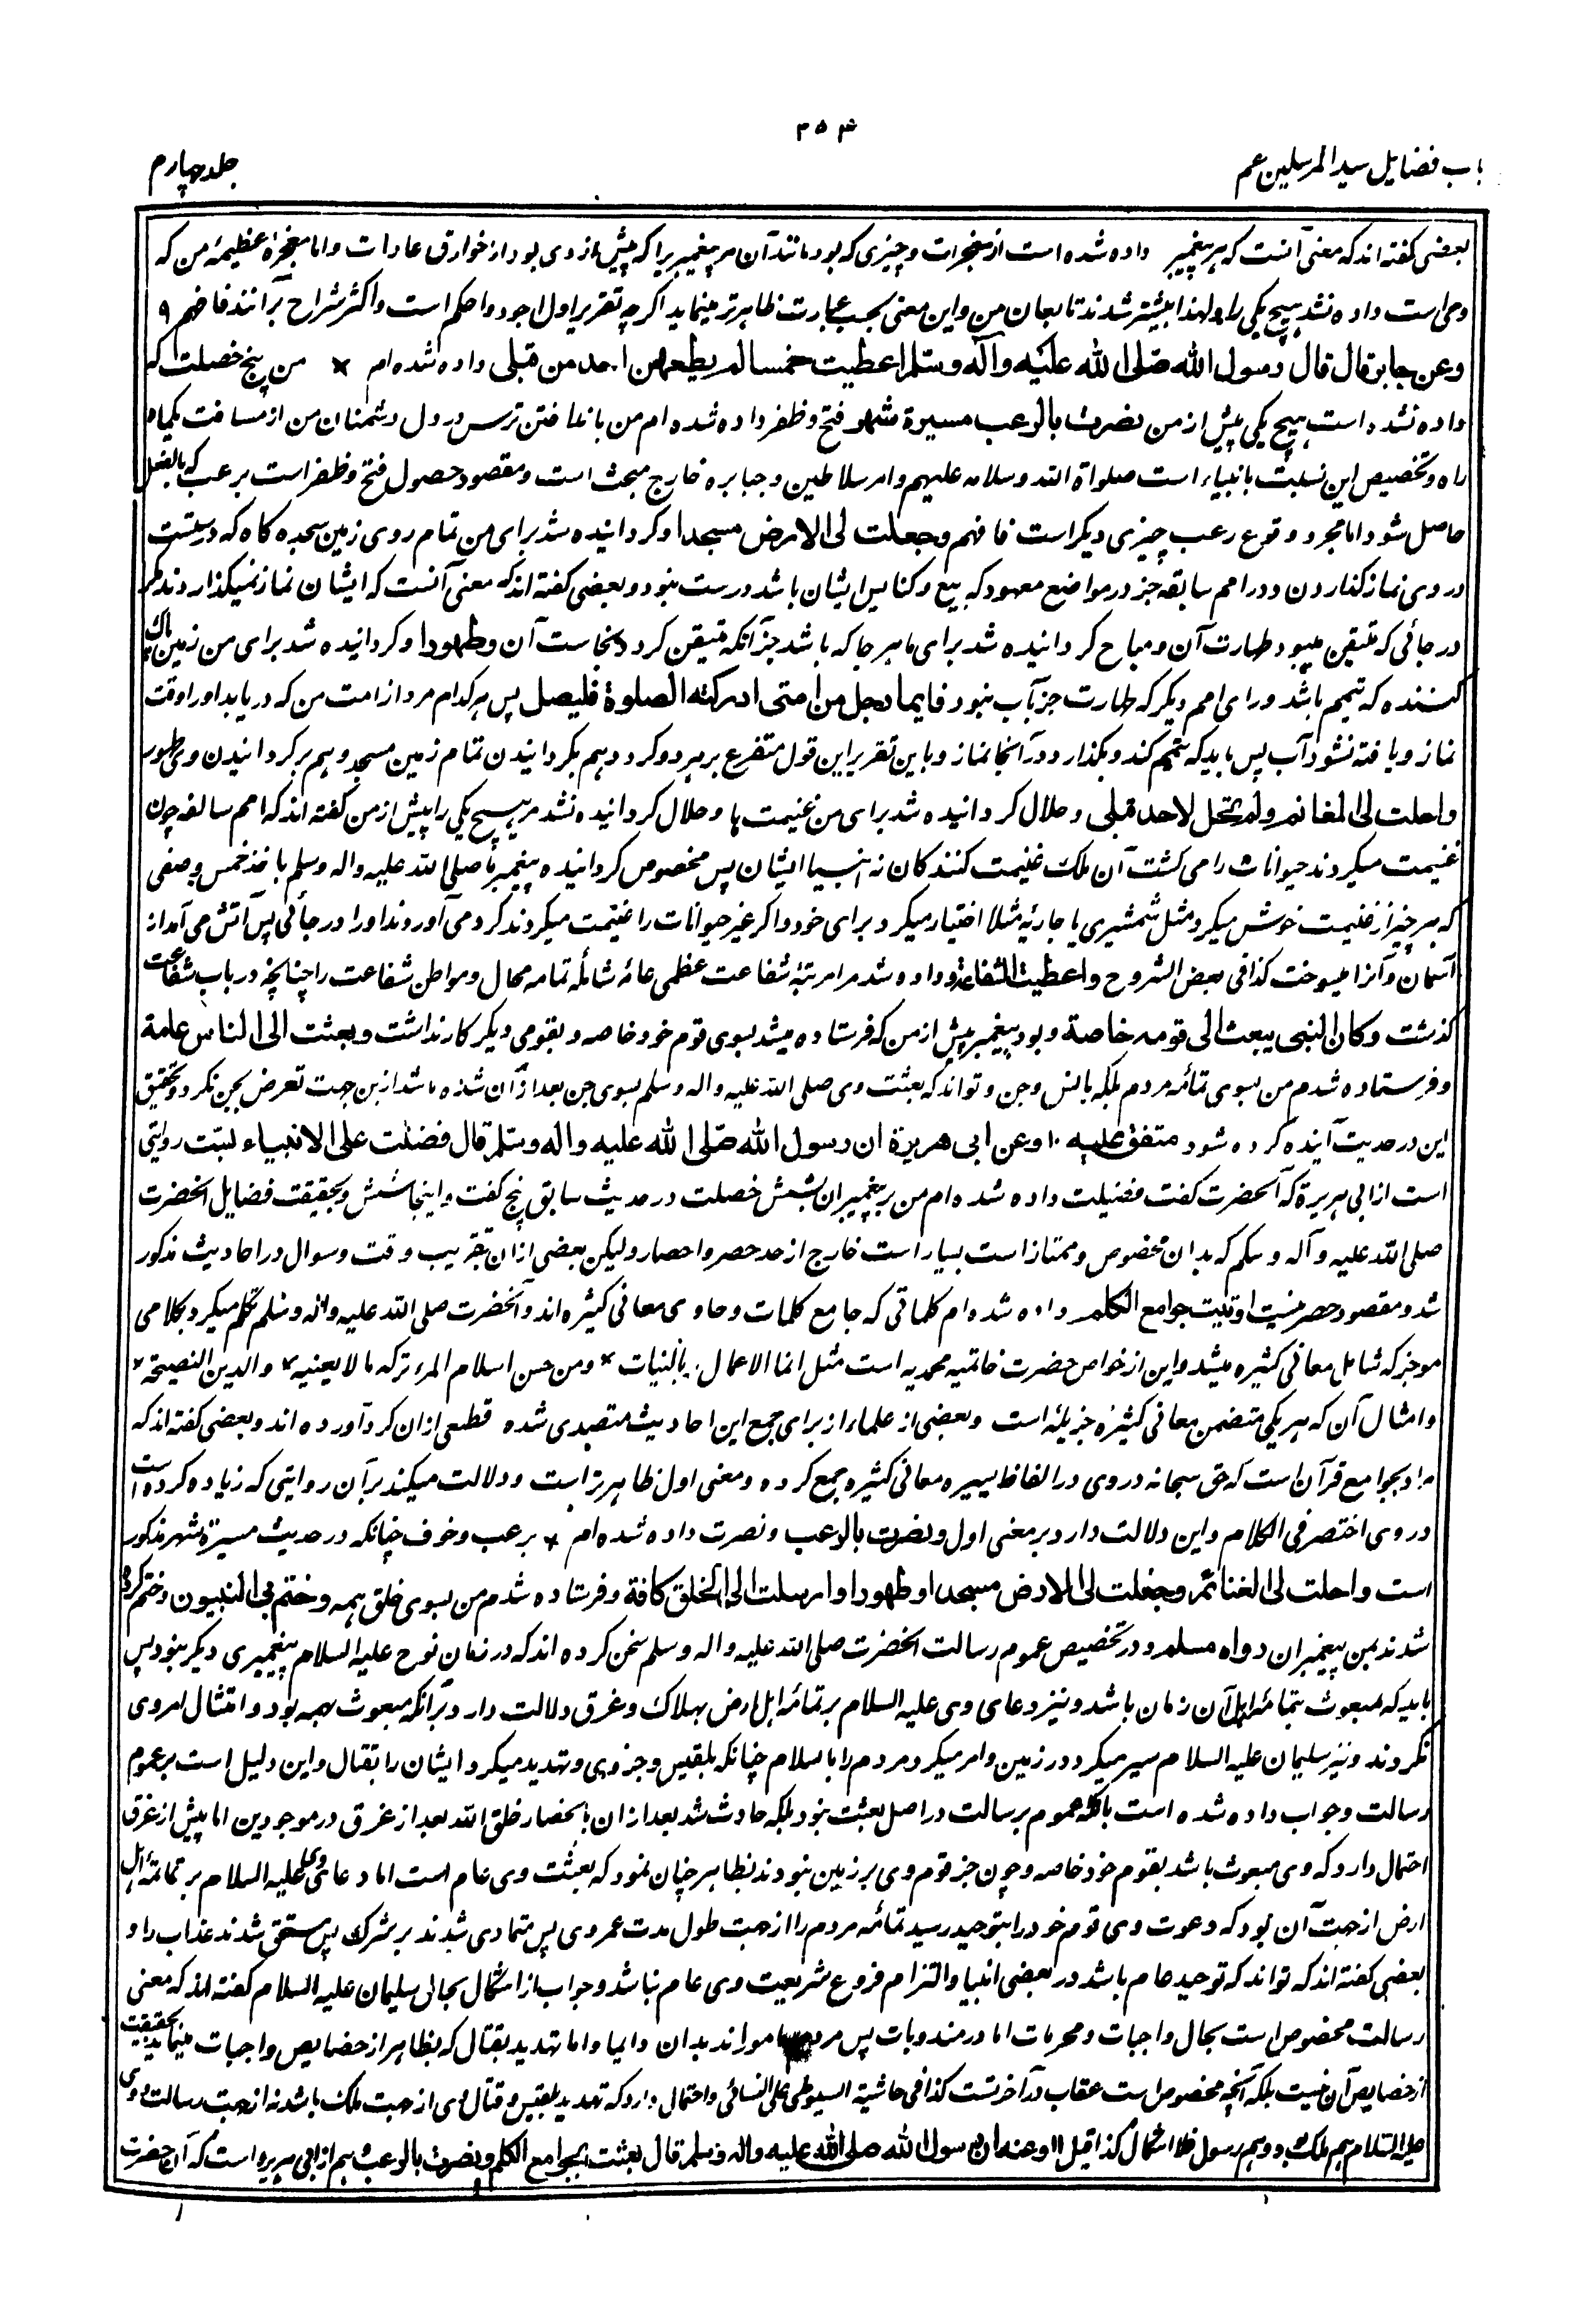 ۴۵۳
باب فضایل سید المرسلین عم
جلد چهارم
بعضی گفته اند که معنی آنست که هر پیغمبر داده شده است از معجزات و چیزی که بود مانند آن مر پیغمبریرا که پیش از وی بود از خوارق عادات و اما معجزهٔ عظیمهٔ من که
وحی است داده نشد هیچ یکی را و لهذا بیشتر شدند تابعان من و این معنی بحسب عبارت ظاهرتر مینماید اگرچه تقریر اول اجود و احکم است و اکثر شراح برآنند فافهم ۹
وعن جابر قال قال رسول الله صلی الله علیه وآله وسلم اعطیت خمسا لم یعطهن احد من قبلی داده شده ام * من پنج خصلت که
داده نشده است هیچ یکی پیش از من نصرت بالرعب مسیرة شهر فتح و ظفر داده شده ام من با نداختن ترس در دل دشمنان من از مسافت یکماه
راه و تخصیص این نسبت بانبیاء است صلواة الله وسلامه علیهم وامر سلاطین و جبابره خارج مبحث است و مقصود حصول فتح و ظفر است برعب که بالفعل
حاصل شود و اما مجرد وقوع رعب چیزی دیگر است فافهم وجعلت لی الارض مسجدا و گردانیده شد برای من تمام روی زمین سجده گاه که درست است
در وی نماز گذاردن و در امم سابقه جز در مواضع معهود که بیع و کنایس ایشان باشد درست نبود و بعضی گفته اند که معنی آنست که ایشان نماز نمیگذاردند مگر
در جائی که متیقن میبود طهارت آن و مباح گردانیده شد برای ما هر جا که باشد جز آنکه متیقن گردد نجاست آن وطهورا و گردانیده شد برای من زمین پاک
کننده که تیمم باشد و رای امم دیگر که طهارت جز بآب نبود فایما رجل من امتی ادرکته الصلوة فلیصل پس هر کدام مرد از امت من که دریابد او را وقت
نماز و یافته نشود آب پس باید که تیمم کند و بگذارد در آنجا نماز و باین تقریر این قول متفرع بر هر دو گردد هم بگردانیدن تمام زمین مسجد و هم بر گردانیدن وی طهور
واحلت لی المغانم ولم تحل لاحد قبلی و حلال گردانیده شد برای من غنیمت ها و حلال گردانیده نشد مر هیچ یکی را پیش از من گفته اند که امم سالفه چون
غنیمت میکردند حیوانات را می گشت آن ملک غنیمت کنندگان نه انبیا ایشان پس مخصوص گردانیده پیغمبر ما صلی الله علیه واله وسلم باخذ خمس و صفی
که هر چیز از غنیمت خوش میکرد مثل شمشیری یا جاریهٔ مثلا اختیار میکرد برای خود و اگر غیر حیوانات را غنیمت میکردند گرد می آوردند او را در جائی پس آتش می آمد از
آسمان و آنرا میسوخت کذا فی بعض الشروح واعطیت الشفاعة و داده شد مرا مرتبهٔ شفاعت عظمی عامهٔ شاملهٔ تمامه محال و مواطن شفاعت را چنانچه در باب شفاعت
گذشت وکان النبی یبعث الی قومه خاصة و بود پیغمبر پیش از من که فرستاده میشد بسوی قوم خود خاصه و بقومی دیگر کار نداشت وبعثت الی الناس عامة
و فرستاده شدم من بسوی تمامهٔ مردم بلکه بانس و جن و تواند که بعثت وی صلی الله علیه واله وسلم بسوی جن بعد از آن شده باشد ازین جهت تعرض بجن نکرد و تحقیق
این در حدیث آینده کرده شود متفق علیه ۱۰ وعن ابی هریرة ان رسول الله صلی الله علیه واله وسلم قال فضلت علی الانبیاء بست روایتی
است از ابی هریرة که آنحضرت گفت فضیلت داده شده ام من بر پیغمبران بشش خصلت در حدیث سابق پنج گفت و اینجا شش و بحقیقت فضایل آنحضرت
صلی الله علیه وآله وسلم که بدان مخصوص و ممتاز است بسیار است خارج از حد حصر و احصار و لیکن بعضی ازان بتقریب وقت و سوال در احادیث مذکور
شد و مقصود حصر نیست اوتیت جوامع الکلم داده شده ام کلماتی که جامع کلمات و حاوی معانی کثیره اند و آنحضرت صلی الله علیه واله وسلم تکلم میکرد بکلامی
موجز که شامل معانی کثیره میشد و این از خواص حضرت خاتمیه محمدیه است مثل انما الاعمال بالنیات * ومن حسن اسلام المرء ترکه مالا یعنیه * والدین النصیحة *
و امثال آن که هر یکی متضمن معانی کثیره جزیله است و بعضی از علماء از برای جمع این احادیث متصدی شده قطعی ازان گرد آورده اند و بعضی گفته اند که
مراد بجوامع قرآن است که حق سبحانه در وی در الفاظ یسیره معانی کثیره جمع کرده و معنی اول ظاهرتر است و دلالت میکند بر آن روایتی که زیاده کرده است
در وی اختصر فی الکلام و این دلالت دارد بر معنی اول ونصرت بالرعب و نصرت داده شده ام * برعب و خوف چنانکه در حدیث مسیرة شهر مذکور
است واحلت لی الغنائم وجعلت لی الارض مسجدا وطهورا وارسلت الی الخلق کافة و فرستاده شدم من بسوی خلق همه وختم بی النبیون و ختم کرده
شدند بمن پیغمبران رواه مسلم و در تخصیص عموم رسالت آنحضرت صلی الله علیه واله وسلم سخن کرده اند که در زمان نوح علیه السلام پیغمبری دیگر نبود پس
باید که مبعوث بتمامهٔ اهل آن زمان باشد و نیز دعای وی علیه السلام بر تمامهٔ اهل ارض بهلاک و غرق دلالت دارد بر آنکه مبعوث بهمه بود و امتثال امر وی
نکردند و نیز سلیمان علیه السلام سیر میکرد در زمین و امر میکرد مردم را باسلام چنانکه بلقیس و جز وی و تهدید میکرد ایشان را بقتال و این دلیل است بر عموم
رسالت و جواب داده شده است بآنکه عموم رسالت در اصل بعثت نبود بلکه حادث شد بعد ازان بانحصار خلق الله بعد از غرق در موجودین اما پیش از غرق
احتمال دارد که وی مبعوث باشد بقوم خود خاصه و چون جز قوم وی بر زمین نبودند بظاهر چنان نمود که بعثت وی عام است اما دعای وی علیه السلام بر تمامهٔ اهل
ارض از جهت آن بود که دعوت وی قوم خود را بتوحید رسید تمامهٔ مردم را از جهت طول مدت عمر وی پس متمادی شدند بر شرک پس مستحق شدند عذاب را و
بعضی گفته اند که تواند که توحید عام باشد در بعضی انبیا و التزام فروع شریعت وی عام نباشد و جواب از اشکال بحال سلیمان علیه السلام گفته اند که معنی
رسالت مخصوص است بحال واجبات و محرمات اما در مندوبات پس مردم مامور اند بدان و ایما و اما تهدید بقتال که بظاهر از خصایص واجبات مینماید بحقیقت
از خصایص آن نیست بلکه آنچه مخصوص است عقاب در آخرتست کذا فی حاشیة السیوطی علی النسائی و احتمال دارد که تهدید بلقیس و قتال وی از جهت ملک باشد نه از جهت رسالت و وی
علیه السلام هم ملک بود و هم رسول فلا اشکال کذا قیل ۱۱ وعنه ان رسول الله صلی الله علیه واله وسلم قال بعثت بجوامع الکلم ونصرت بالرعب هم از ابی هریره است که آن حضرت